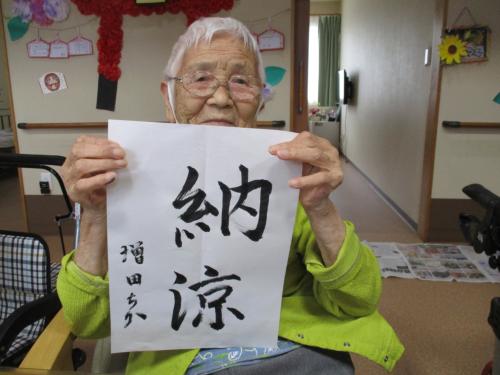 納
涼
増田ちか